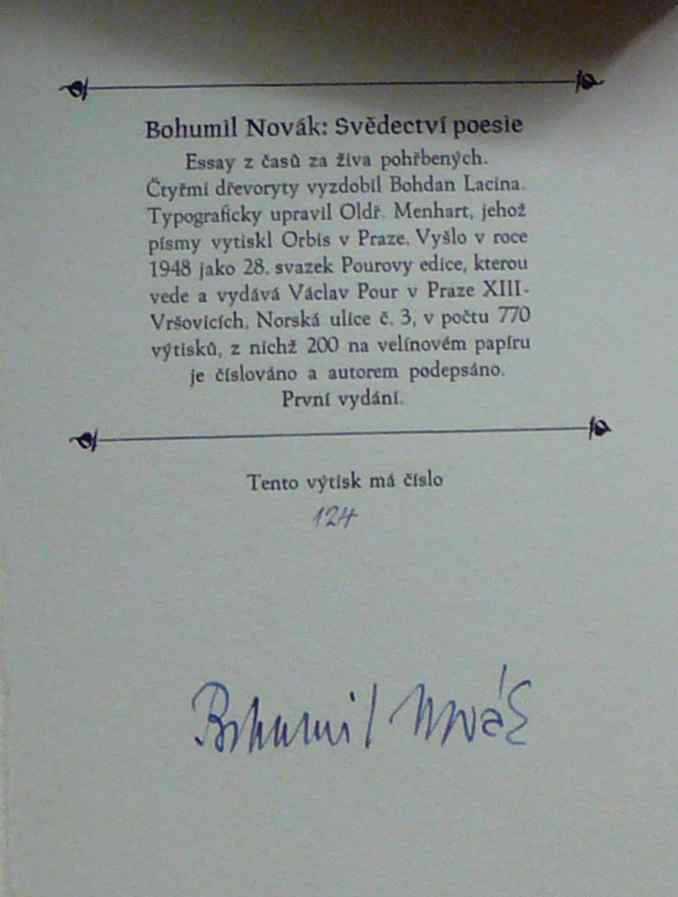 Bohumil Novák: Svědectví poesie
Essay z časů za živa pohřbených.
Čtyřmi dřevoryty vyzdobil Bohdan Lacina.
Typograficky upravil Oldř. Menhart, jehož
písmy vytiskl Orbis v Praze. Vyšlo v roce
1948 jako 28. svazek Pourovy edice, kterou
vede a vydává Václav Pour v Praze XIII-
Vršovicích, Norská ulice č. 3, v počtu 770
výtisků, z nichž 200 na velínovém papíru
je číslováno a autorem podepsáno.
První vydání.
Tento výtisk má číslo
124
Bohumil Novák